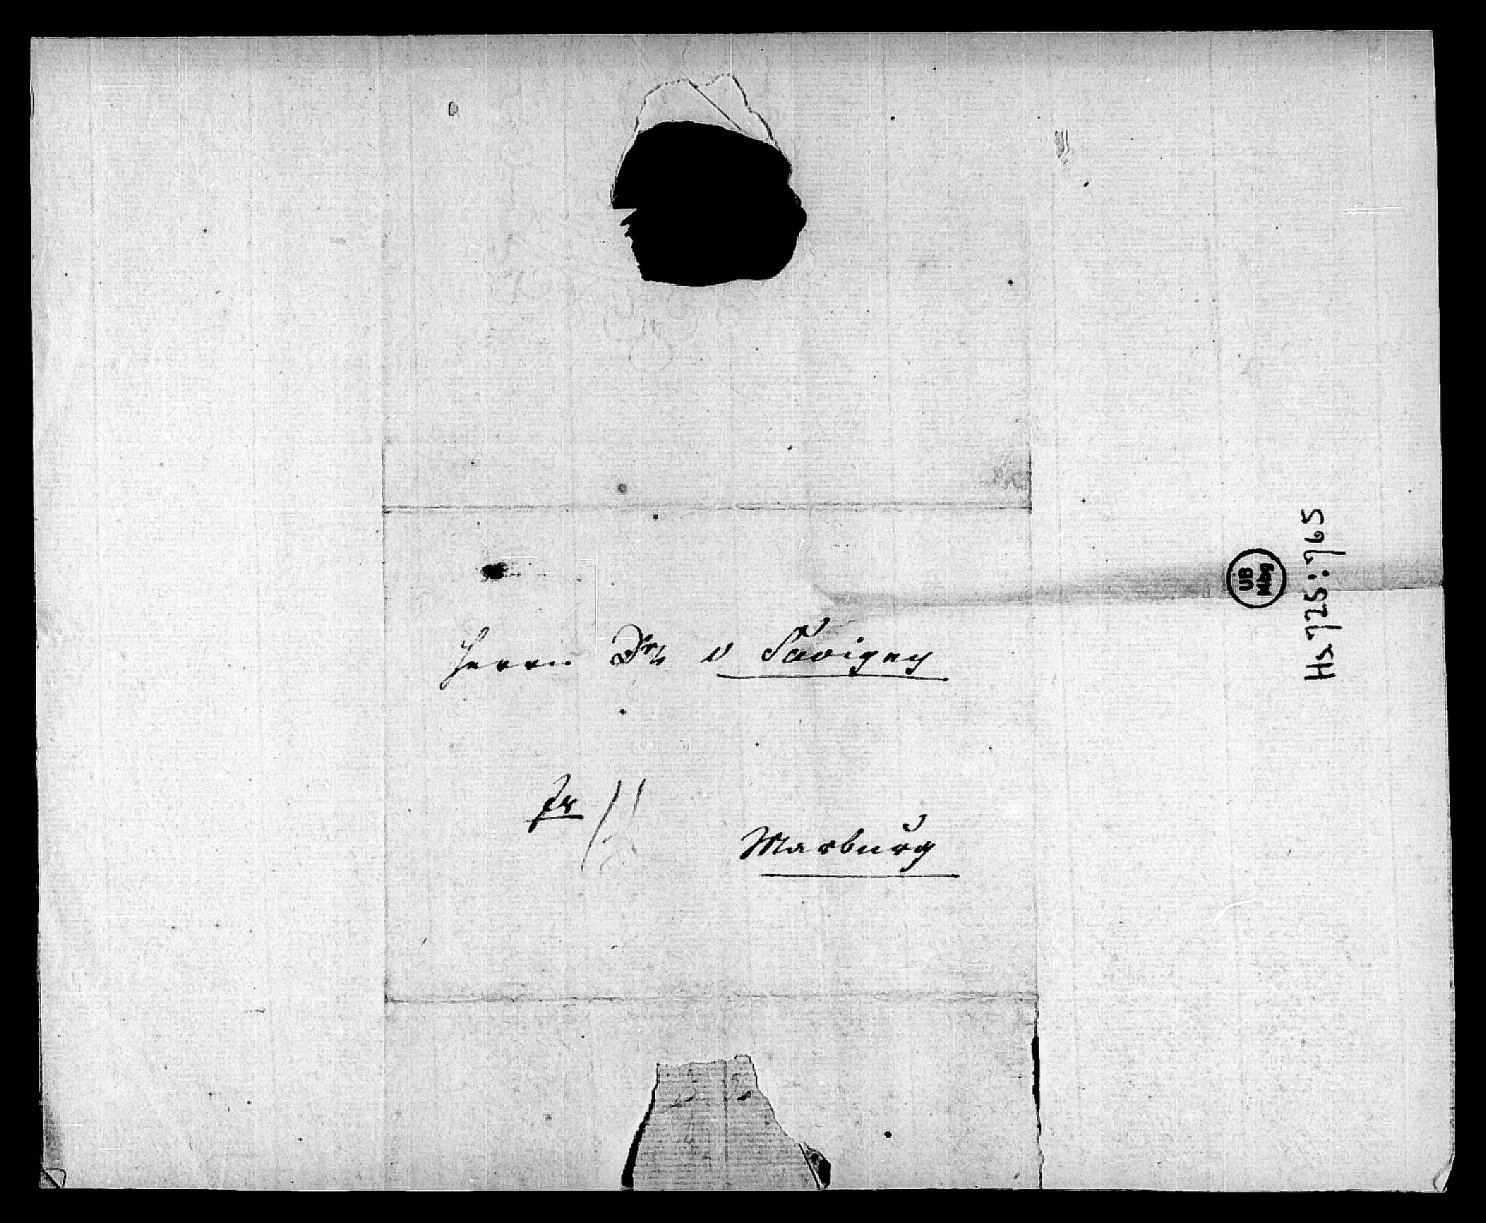 Herrn Dr. v Savigny
fr
Marburg
UB
Mbg
Hs 725:765